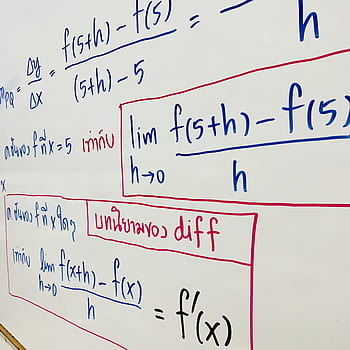 m_PQ = Δy/Δx = (f(5+h) - f(5))/((5+h) - 5) = /h
ความชันของ f ที่ x = 5 เท่ากับ lim h→0 (f(5+h) - f(5))/h
x
ความชันของ f ที่ x ใดๆ บทนิยามของ diff
เท่ากับ lim h→0 (f(x+h) - f(x))/h = f'(x)